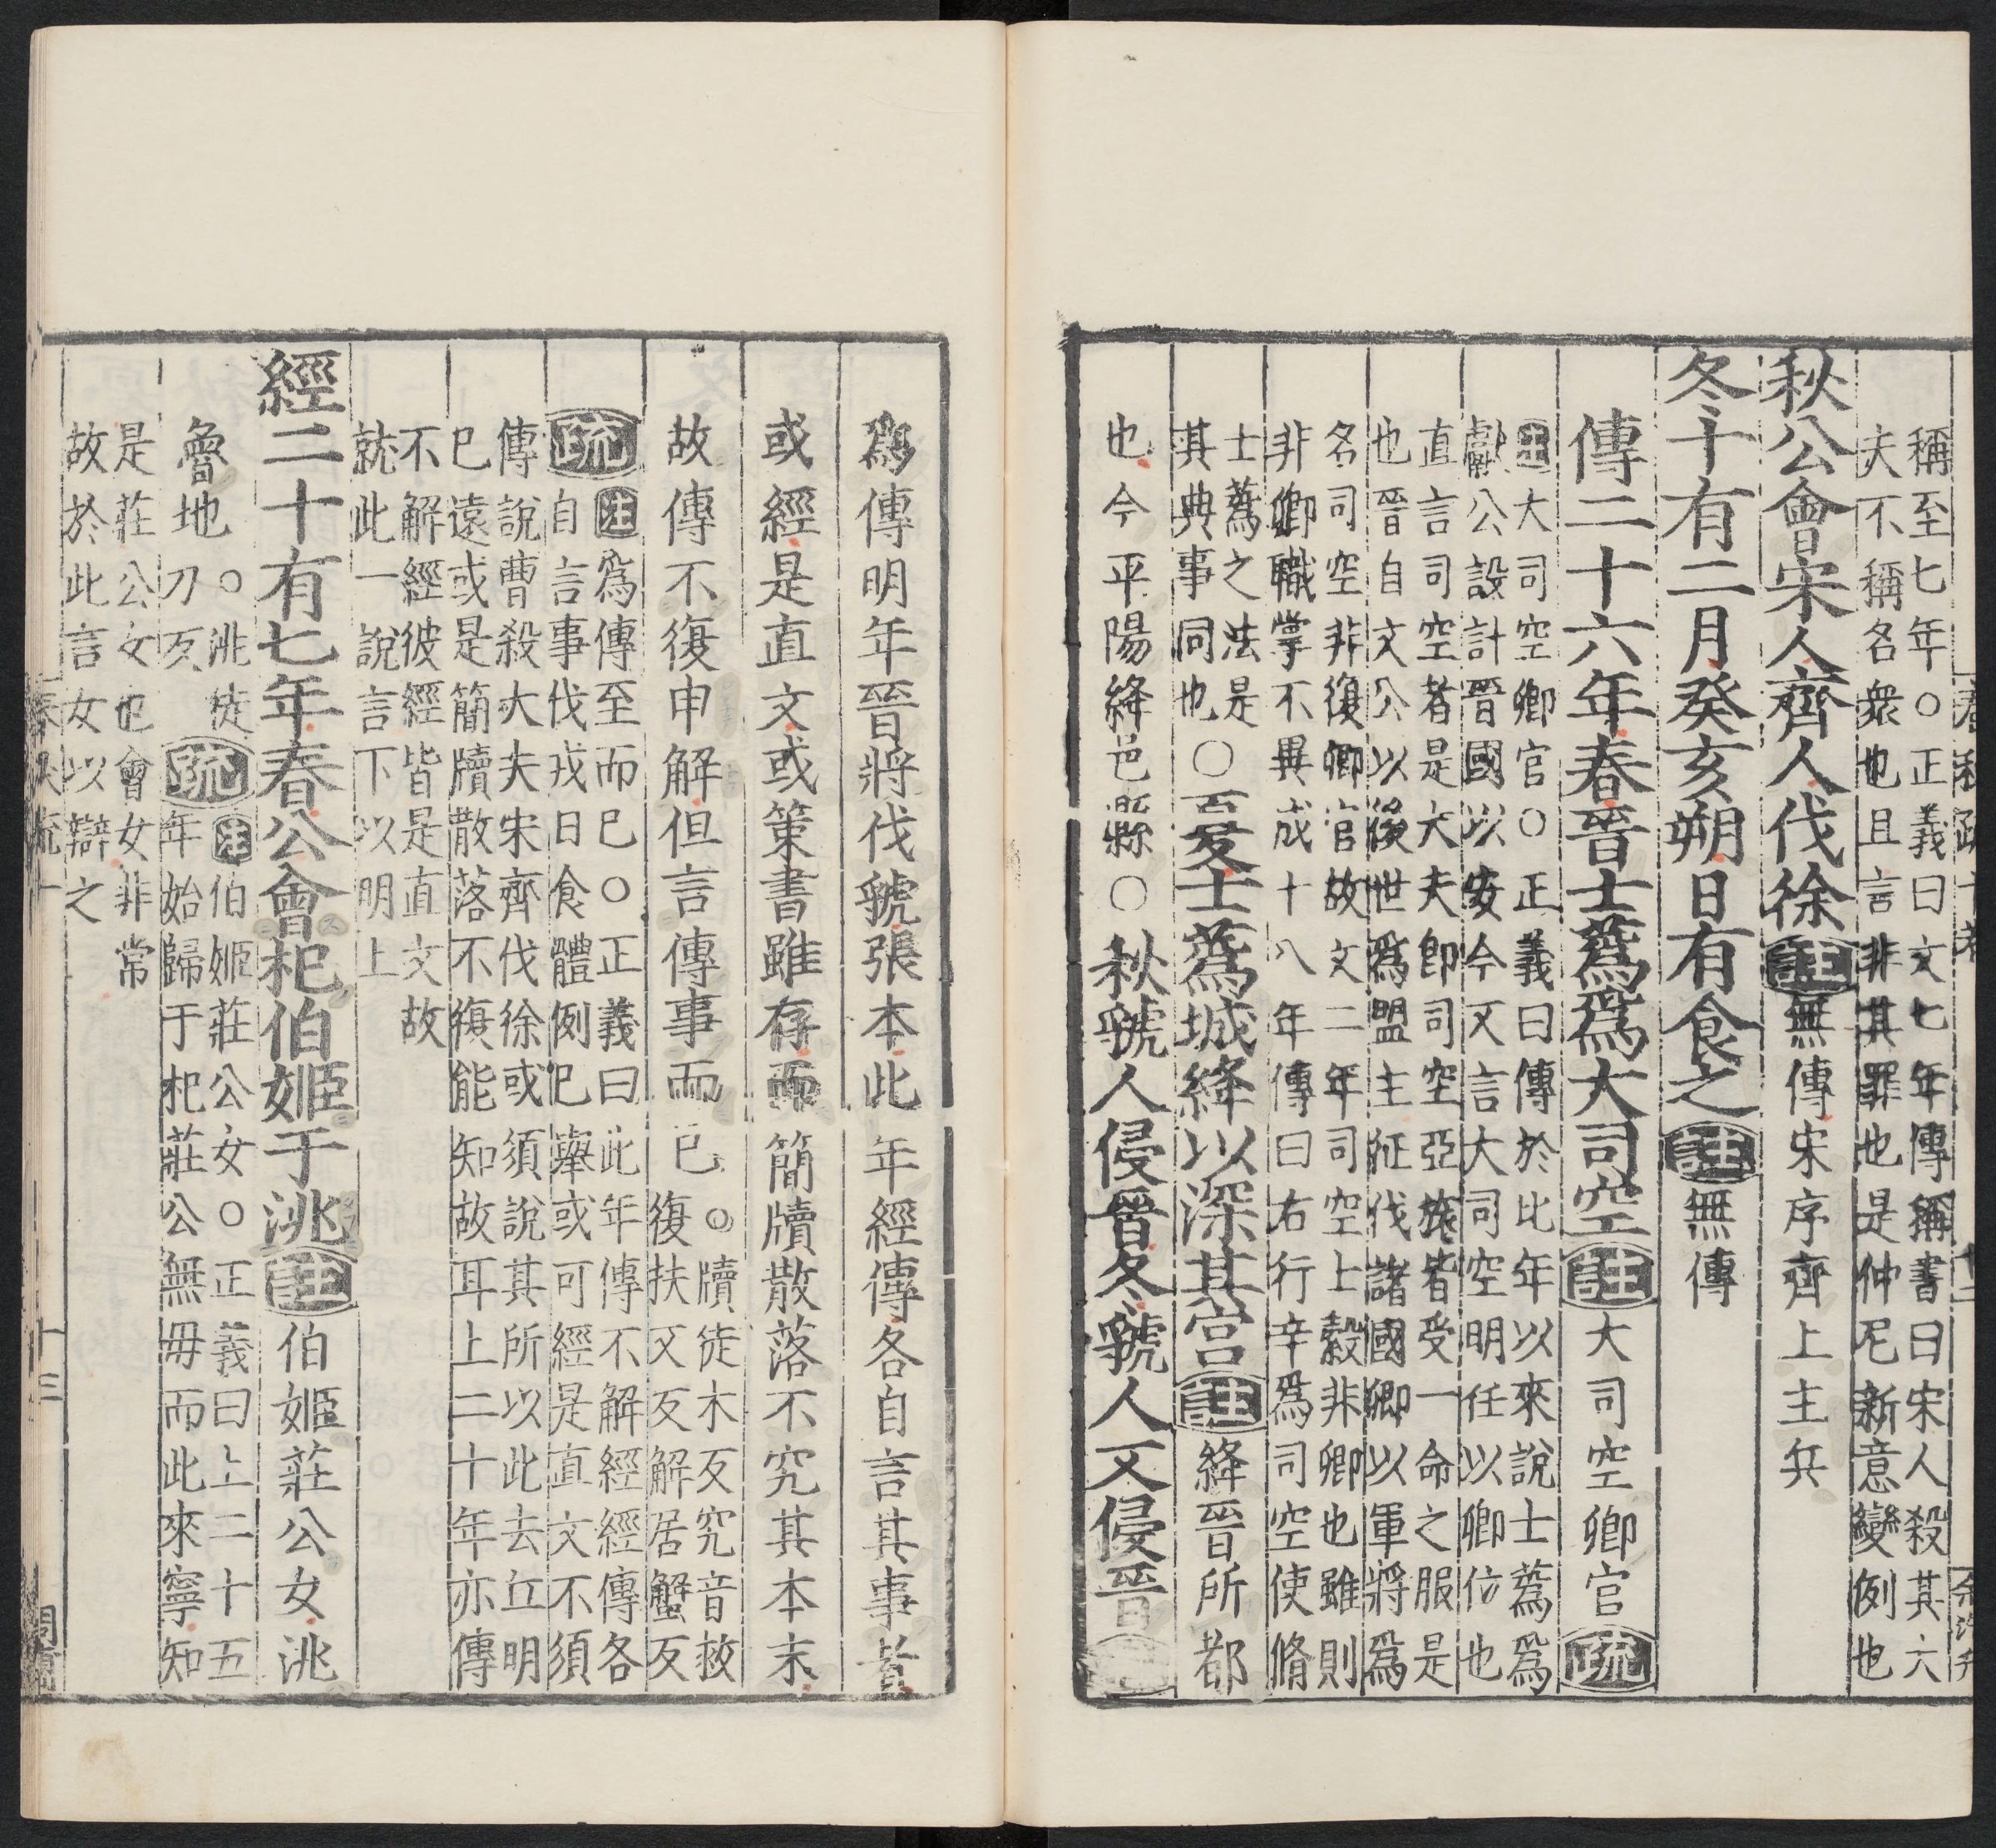 稱至七年○正義曰文七年傳稱書曰宋人殺其大
夫不稱名衆也且言非其罪也是仲尼新意變例也
秋公會宋人齊人伐徐註無傳宋序齊上主兵
冬十有二月癸亥朔日有食之註無傳
傳二十六年春晉士蒍爲大司空註大司空卿官疏
注大司空卿官○正義曰傳於比年以來說士蒍爲
獻公設計晉國以安今又言大司空明任以卿位也
直言司空者是大夫卽司空亞旅皆受一命之服是
也晉自文公以後世爲盟主征伐諸國卿以軍將爲
名司空非復卿官故文二年司空士縠非卿也雖則
非卿職掌不異成十八年傳曰右行辛爲司空使脩
士蒍之法是
其典事同也○夏士蒍城絳以深其宮註絳晉所都
也今平陽絳邑縣○秋虢人侵晉冬虢人又侵晉
爲傳明年晉將伐虢張本此年經傳各自言其事者
或經是直文或策書雖存而簡牘散落不究其本末
故傳不復申解但言傳事而已○牘徒木反究音救
復扶又反解居蟹反
疏注爲傳至而已○正義曰此年傳不解經經傳各
自言事伐戎日食體例已舉或可經是直文不須
傳說曹殺大夫宋齊伐徐或須說其所以此去丘明
已遠或是簡牘散落不復能知故耳上二十年亦傳
不解經彼經皆是直文故
就此一說言下以明上
經二十有七年春公會杞伯姬于洮註伯姬莊公女洮
魯地○洮徒
刀反疏注伯姬莊公女○正義曰上二十五
年始歸于杞莊公無母而此來寧知
是莊公女也會女非常
故於此言女以辯之
春秋疏十
十三